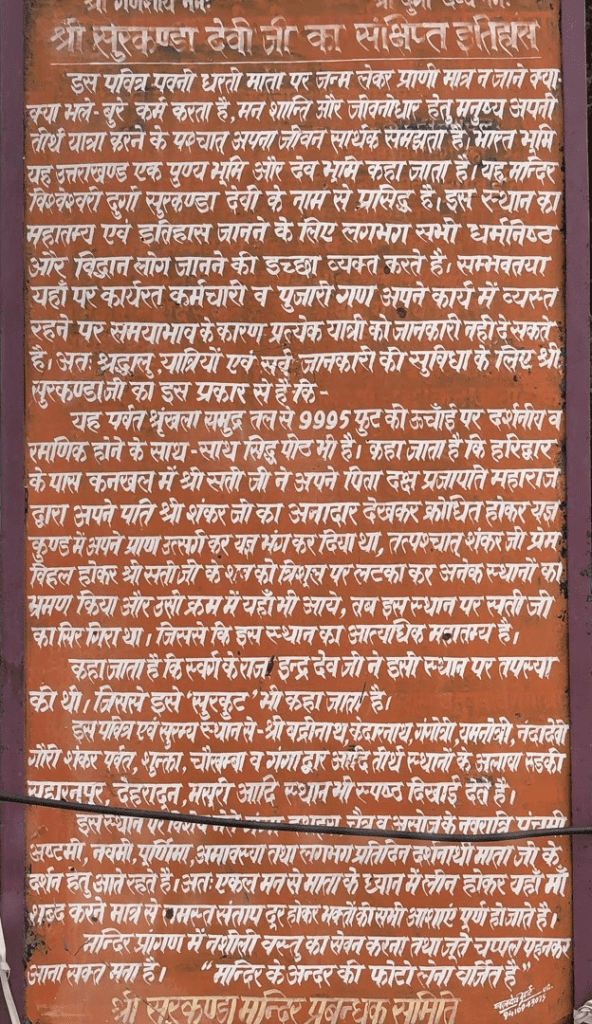 श्री गणेशाय नमः श्री दुर्गा देव्यै नमः
श्री सुरकण्डा देवी जी का संक्षिप्त इतिहास
इस पवित्र पावनी धरती माता पर जन्म लेकर प्राणी मात्र न जाने क्या-
क्या भले-बुरे कर्म करता है, मन शान्ति और जीवनोधार हेतु मनुष्य अपनी
तीर्थ यात्रा करने के पश्चात् अपना जीवन सार्थक समझता है। भारत भूमि
यह उत्तराखण्ड एक पुण्य भूमि और देव भूमि कहा जाता है। यह मन्दिर
विश्वेश्वरी दुर्गा सुरकण्डा देवी के नाम से प्रसिद्ध है। इस स्थान का
महातम्य एवं इतिहास जानने के लिए लगभग सभी धर्मनिष्ठ
और विद्वान लोग जानने की इच्छा व्यक्त करते है। सम्भवतया
यहाँ पर कार्यरत कर्मचारी व पुजारी गण अपने कार्य में व्यस्त
रहने पर समयाभाव के कारण प्रत्येक यात्री को जानकारी नही दे सकते
है। अतः श्रद्धालु यात्रियों एवं सर्व जानकारी की सुविधा के लिए श्री
सुरकण्डाजी का इस प्रकार से है कि -
यह पर्वत श्रृंखला समुद्र तल से 9995 फुट की ऊचाँई पर दर्शनीय व
रमणिक होने के साथ-साथ सिद्ध पीठ भी है। कहा जाता है कि हरिद्वार
के पास कनखल में श्री सती जी ने अपने पिता दक्ष प्रजापति महाराज
द्वारा अपने पति श्री शंकर जी का अनादार देखकर क्रोधित होकर यज्ञ
कुण्ड में अपने प्राण उत्सर्ग कर यज्ञ भंग कर दिया था, तत्पश्चात् शंकर जी प्रेम
विहल होकर श्री सती जी के शव को त्रिशूल पर लटका कर अनेक स्थानों का
भ्रमण किया और उसी क्रम में यहाँ भी आये, तब इस स्थान पर सती जी
का सिर गिरा था। जिससे कि इस स्थान का आत्यधिक महातम्य है।
कहा जाता है कि स्वर्ग के राजा इन्द्र देव जी ने इसी स्थान पर तपस्या
की थी। जिससे इसे 'सुरकुट' भी कहा जाता है।
इस पवित्र एवं सुरम्य स्थान से - श्री बद्रीनाथ, केदारनाथ, गंगोत्री, यमनोत्री, नंदादेवी
गौरी शंकर पर्वत, चौखम्बा व गंगाद्वार आदि तीर्थ स्थानों के अलावा रूडकी
सहारनपुर, देहरादून, मसूरी आदि स्थान भी स्पष्ठ दिखाई देते है।
इस स्थान पर दशहरा चैत्र व असोज के नवरात्रि पंचमी
अष्टमी, नवमी, पूर्णिमा, अमावस्या तथा लगभग प्रतिदिन दर्शनार्थी माता जी के
दर्शन हेतु आते रहते है। अतः एकल मन से माता के ध्यान में लीन होकर यहाँ माँ
शब्द करने मात्र से समस्त संताप दूर होकर भक्तों की सभी आशाएं पूर्ण हो जाते है।
मन्दिर प्रांगण में नशीली वस्तु का सेवन करना तथा जूते चप्पल पहनकर
आना सक्त मना है। "मन्दिर के अन्दर की फोटो लेना वर्जित है"
श्री सुरकण्डा मन्दिर प्रबन्धक समिति